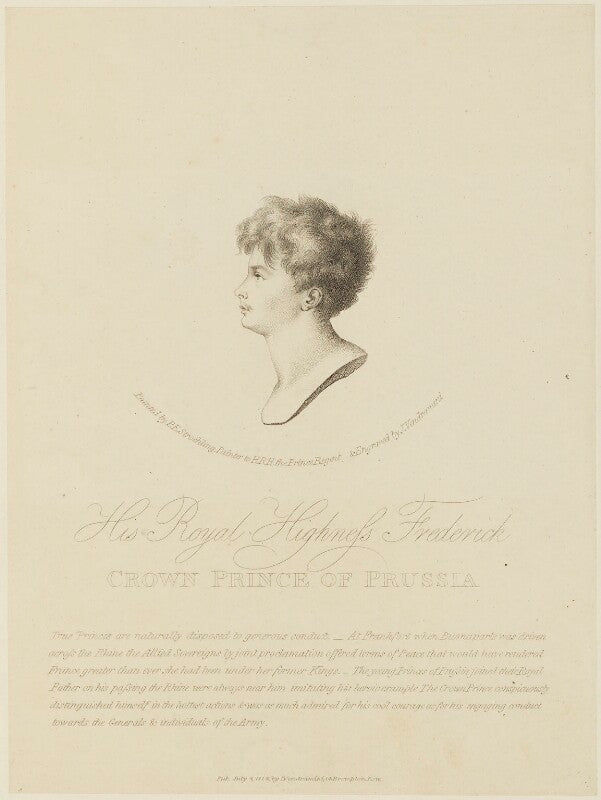 Painted by P.E. Stroehling Painter to H.R.H. the Prince Regent & Engraved by J. Vendramini
His Royal Highneſs Frederick
CROWN PRINCE OF PRUSSIA
True Princes are naturally disposed to generous conduct. _ At Frankfort when Buonaparte was driven
acroſs the Rhine the Allied Sovereigns by joint proclamation offered terms of Peace that would have rendered
France greater than ever she had been under her former Kings. _ The young Princes of Pruſsia joined their Royal
Father on his paſsing the Rhine were always near him imitating his heroic example The Crown Prince conspicuously
distinguished himself in the hottest actions & was as much admired for his cool courage as for his engaging conduct
towards the Generals & individuals of the Army.
Pub. July by Vendramini Brompton Row